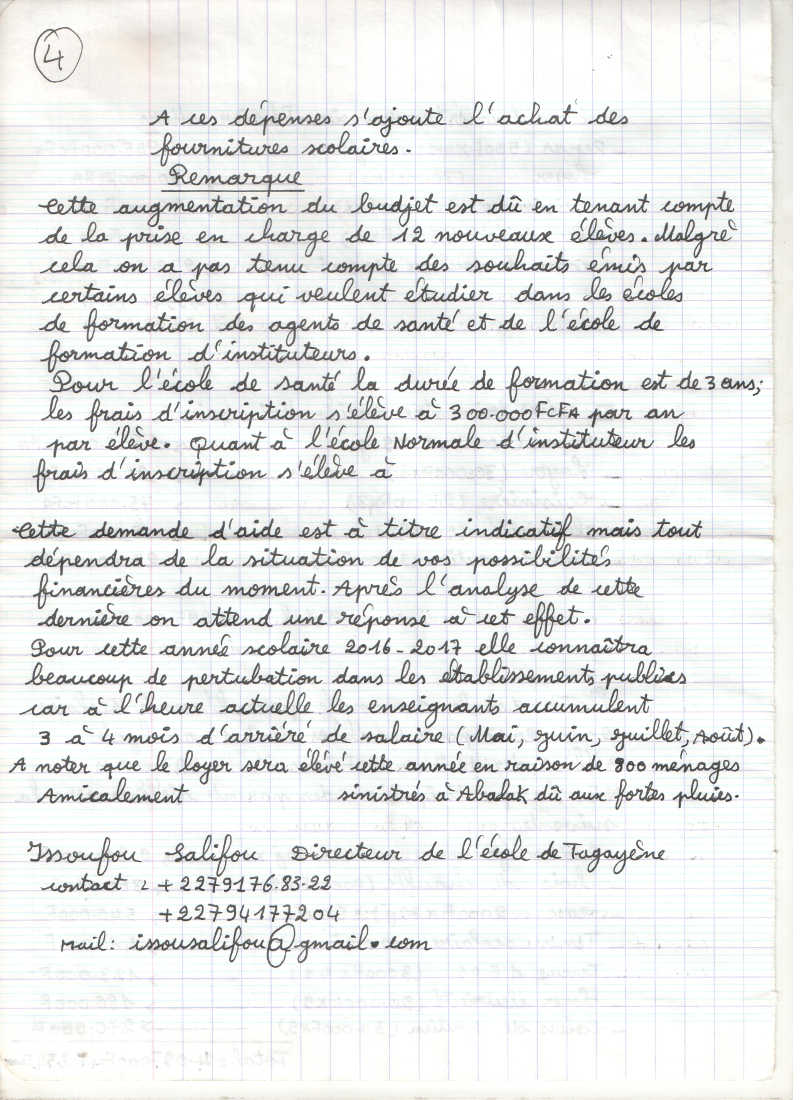 4
A ces dépenses s'ajoute l'achat des
fournitures scolaires.
Remarque
Cette augmentation du budjet est dû en tenant compte
de la prise en charge de 12 nouveaux élèves. Malgrè
cela on a pas tenu compte des souhaits émis par
certains élèves qui veulent étudier dans les écoles
de formation des agents de santé et de l'école de
formation d'instituteurs.
Pour l'école de santé la durée de formation est de 3 ans;
les frais d'inscription s'élève à 300.000FCFA par an
par élève. Quant à l'école Normale d'instituteur les
frais d'inscription s'élève à
Cette demande d'aide est à titre indicatif mais tout
dépendra de la situation de vos possibilités
financières du moment. Après l'analyse de cette
dernière on attend une réponse à cet effet.
Pour cette année scolaire 2016-2017 elle connaîtra
beaucoup de pertubation dans les établissements publics
car à l'heure actuelle les enseignants accumulent
3 à 4 mois d'arriéré de salaire (Mai, Juin, Juillet, Août).
A noter que le loyer sera élévé cette année en raison de 800 ménages
Amicalement sinistrés à Abalak dû aux fortes pluies.
Issoufou Salifou Directeur de l'école de Tagayène
contact : +2279176.83.22
+22794177204
Mail: issousalifou@gmail.com